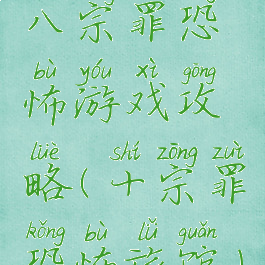 八宗罪恐
bù yóu xì gōng
怖游戏攻
lüè shí zōng zuì
略(十宗罪
kǒng bù lǚ guǎn
恐怖旅馆)